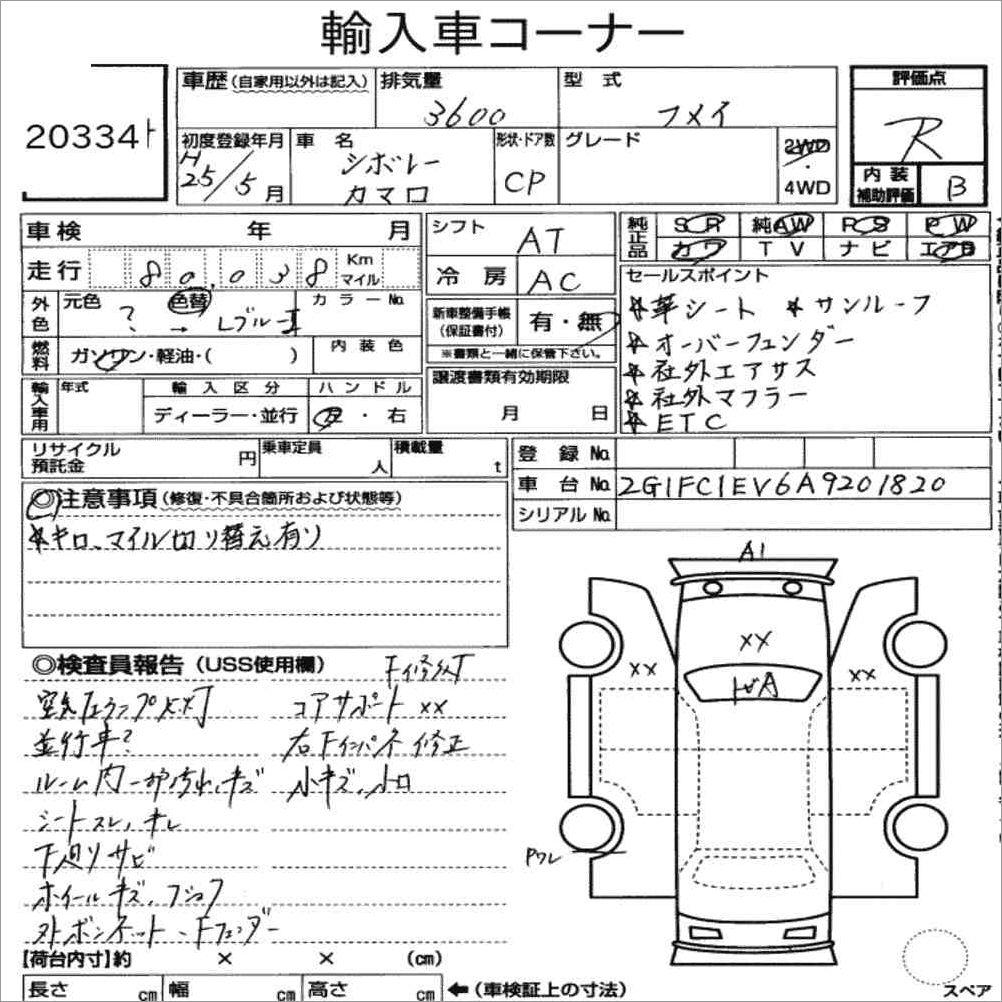 輸入車コーナー
20334
車歴(自家用以外は記入) 排気量 3600 型式 フメイ
評価点 R
初度登録年月 H25/5月 車名 シボレー カマロ 形状・ドア数 CP グレード 2WD・4WD
内装補助評価 B
車検 年 月
シフト AT
純正品 SR 純AW PS PW
カワ TV ナビ エアB
走行 80,038 Km マイル
冷房 AC
セールスポイント
外色 元色 ? 色替 → Lブルー カラーNo.
新車整備手帳(保証書付) 有・無
※書類と一緒に保管下さい。
★革シート ★サンルーフ
★オーバーフェンダー
★社外エアサス
★社外マフラー
★ETC
燃料 ガソリン・軽油・( ) 内装色
譲渡書類有効期限
月 日
輸入車用 年式 輸入区分 ハンドル
ディーラー・並行 左・右
リサイクル預託金 円 乗車定員 人 積載量 t
登録No.
車台No. 2G1FC1EV6A9201820
シリアルNo.
◎注意事項(修復・不具合箇所および状態等)
★キロ、マイル切り替え有り
A1
XX
XX
XX
◎検査員報告(USS使用欄)
空気圧ランプ点灯 コアサポート XX
並行車? 右Fインパネ修正
ルーム内一部汚れ、キズ 小キズ、小凹
シートスレ、キレ
下廻りサビ
ホイールキズ、フショク
外ボンネット、Fフェンダー
Pワレ
【荷台内寸】約 × × (cm)
長さ cm 幅 cm 高さ cm ←(車検証上の寸法)
スペア